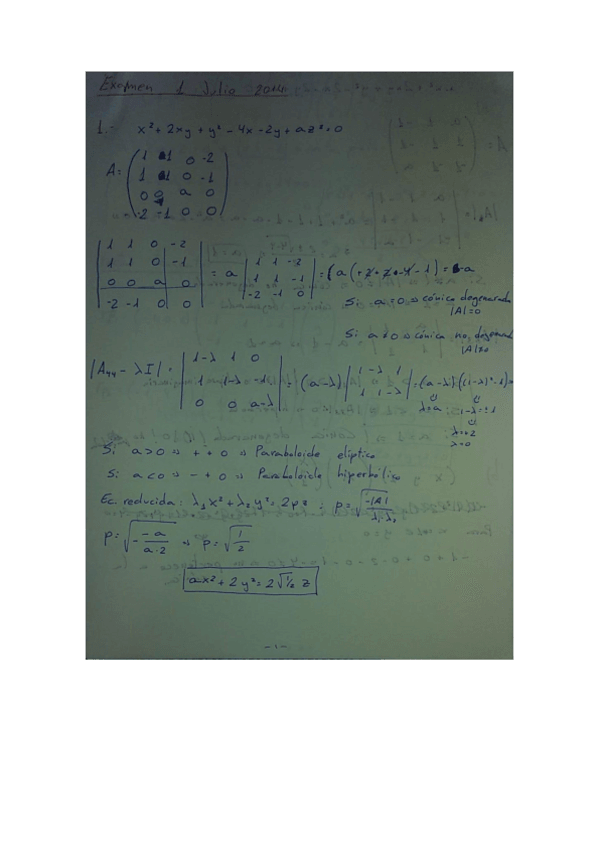 Examen 1 Julio 2014
1.- x² + 2xy + y² - 4x - 2y + az² = 0
A = ( 1 1 0 -2
1 1 0 -1
0 0 a 0
-2 -1 0 0 )
| 1 1 0 -2 |
| 1 1 0 -1 |
| 0 0 a 0 |
| -2 -1 0 0 |
= a | 1 1 -2 |
| 1 1 -1 |
| -2 -1 0 |
= (a(+2+2-4-1) = -a
Si a=0 ⇒ cónica degenerada
|A|=0
Si a≠0 ⇒ cónica no degenerad
|A|≠0
|A₄₄ - λI| = | 1-λ 1 0 |
| 1 1-λ -1 |
| 0 0 a-λ |
= (a-λ) | 1-λ 1 |
| 1 1-λ |
= (a-λ)·((1-λ)²-1) =
λ=a 1-λ=±1
λ=+2
λ=0
Si a>0 ⇒ + + 0 ⇒ Paraboloide elíptico
Si a<0 ⇒ - + 0 ⇒ Paraboloide hiperbólico
Ec. reducida: λ₁x² + λ₂y² = 2pz ; p = √(-|A|/λ₁·λ₂)
p = √(- -a/a·2) ⇒ p = √(1/2)
ax² + 2y² = 2√½ z
-1-